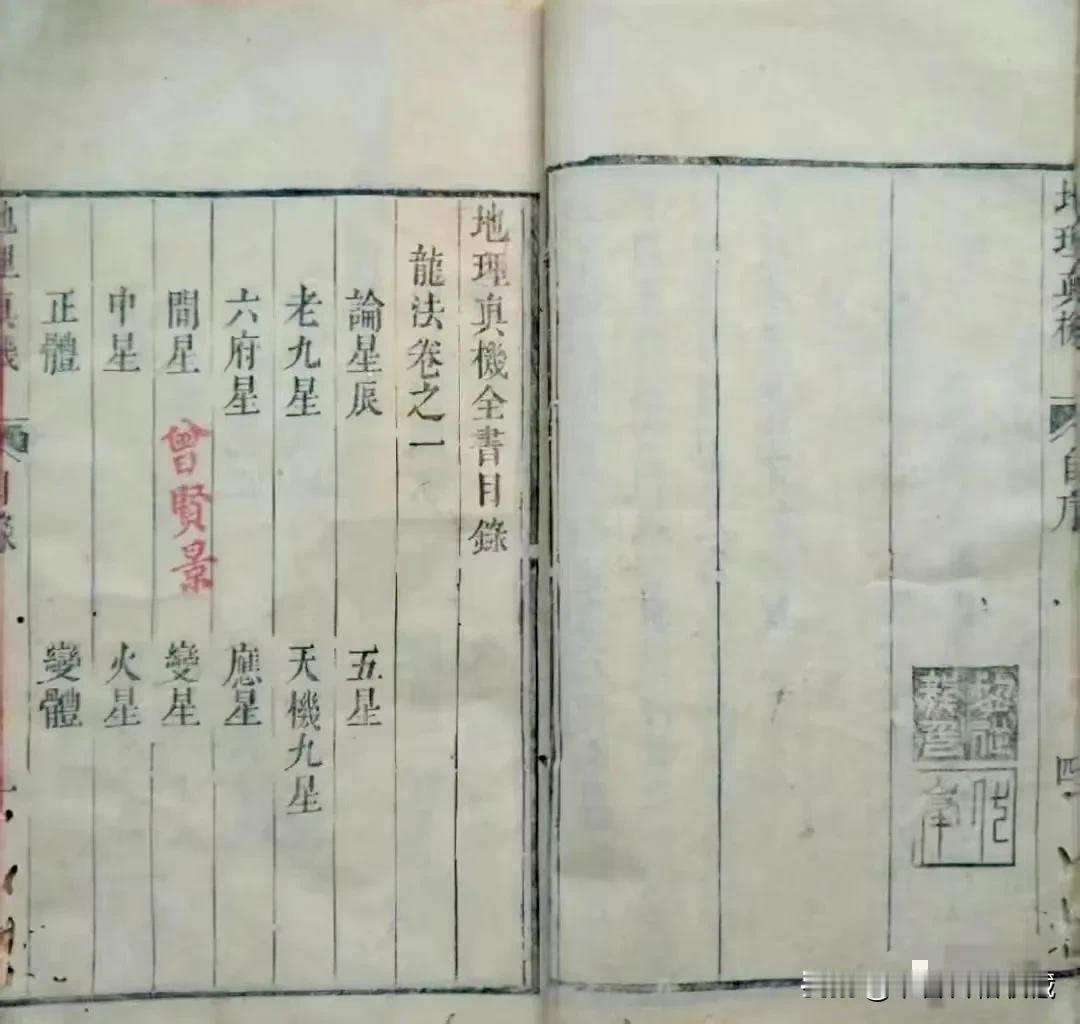 地理真機
自序
四
地理真機全書目錄
龍法卷之一
論星辰 五星
老九星 天機九星
六府星 應星
間星 變星
曾賢景
中星 火星
正體 變體
地理真機
目錄
一